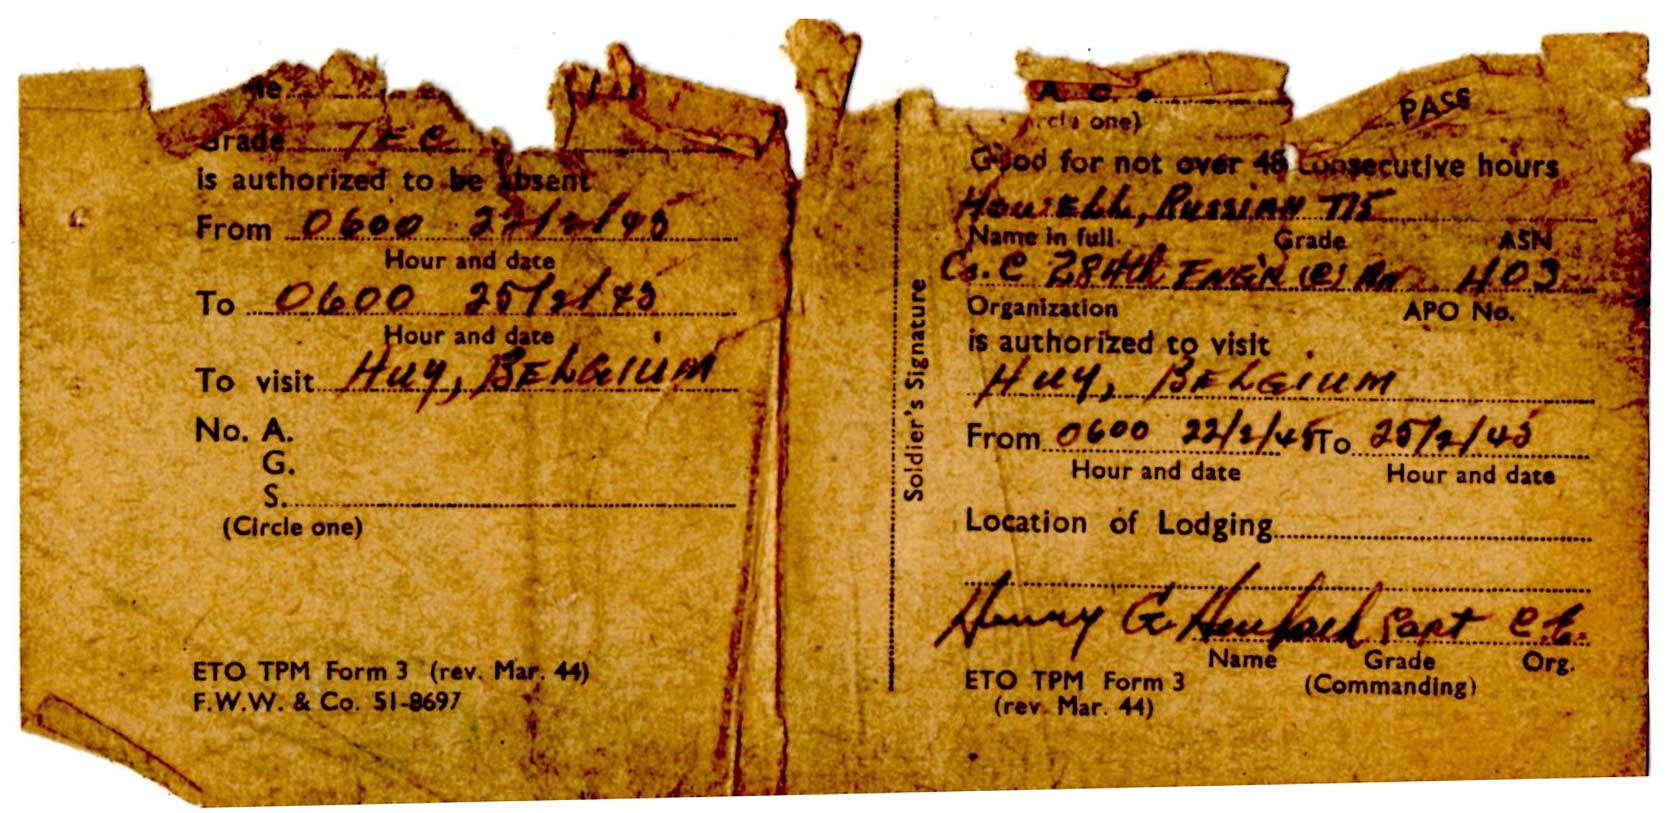 Grade TEC
is authorized to be absent
From 0600 22/2/45
Hour and date
To 0600 25/2/45
Hour and date
To visit Huy, BELGIUM
No. A.
G.
S.
(Circle one)
ETO TPM Form 3 (rev. Mar. 44)
F.W.W. & Co. 51-8697
Soldier's Signature
A. C.
PASS
one)
Good for not over 48 consecutive hours
HOWELL, RUSSIAN T/5
Name in full Grade ASN
Co. C 284th ENGR (C) BN 403
Organization APO No.
is authorized to visit
Huy, BELGIUM
From 0600 22/2/45 To 25/2/45
Hour and date Hour and date
Location of Lodging
Henry G. Capt C.E.
Name Grade Org.
ETO TPM Form 3 (Commanding)
(rev. Mar. 44)